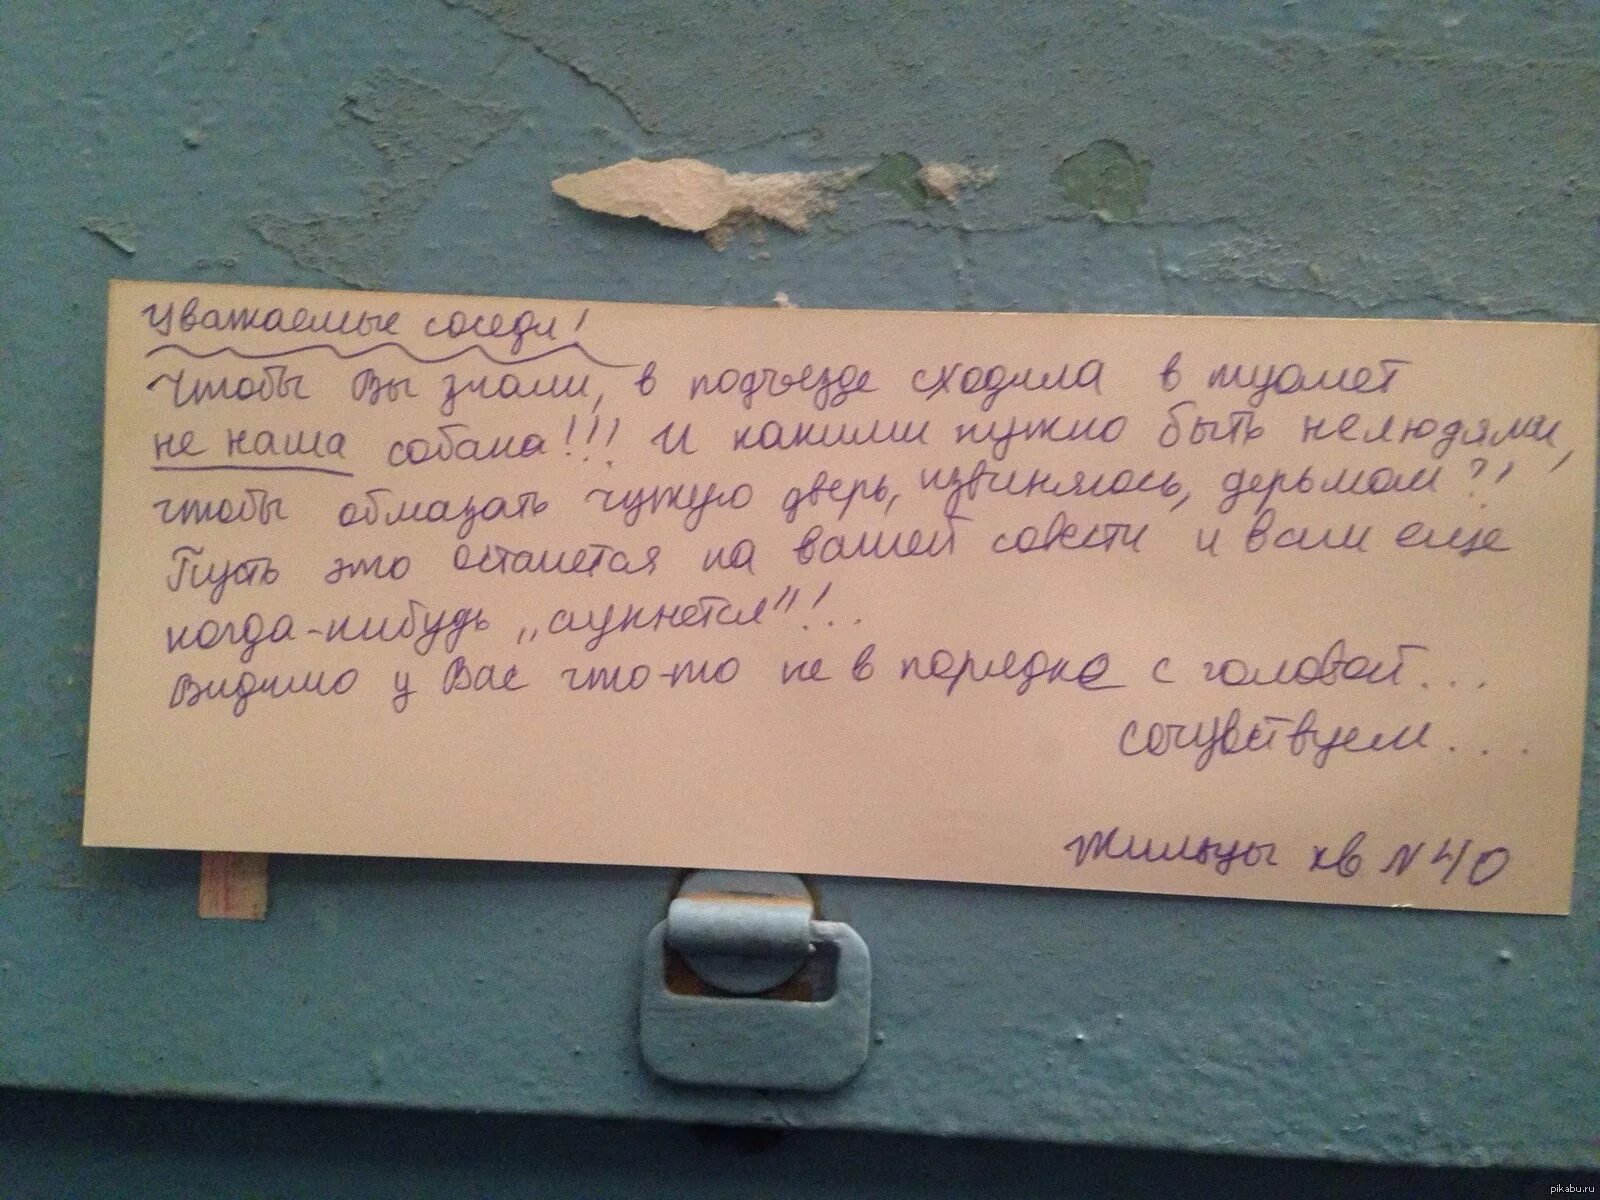 Уважаемые соседи!
Чтобы Вы знали, в подъезде сходила в туалет
не наша собака!!! И какими нужно быть нелюдями,
чтобы обмазать чужую дверь, извиняюсь, дерьмом?!
Пусть это останется на вашей совести и вам еще
когда-нибудь „аукнется"!...
Видимо у Вас что-то не в порядке с головой...
сочувствуем....
Жильцы кв N 40
pikabu.ru